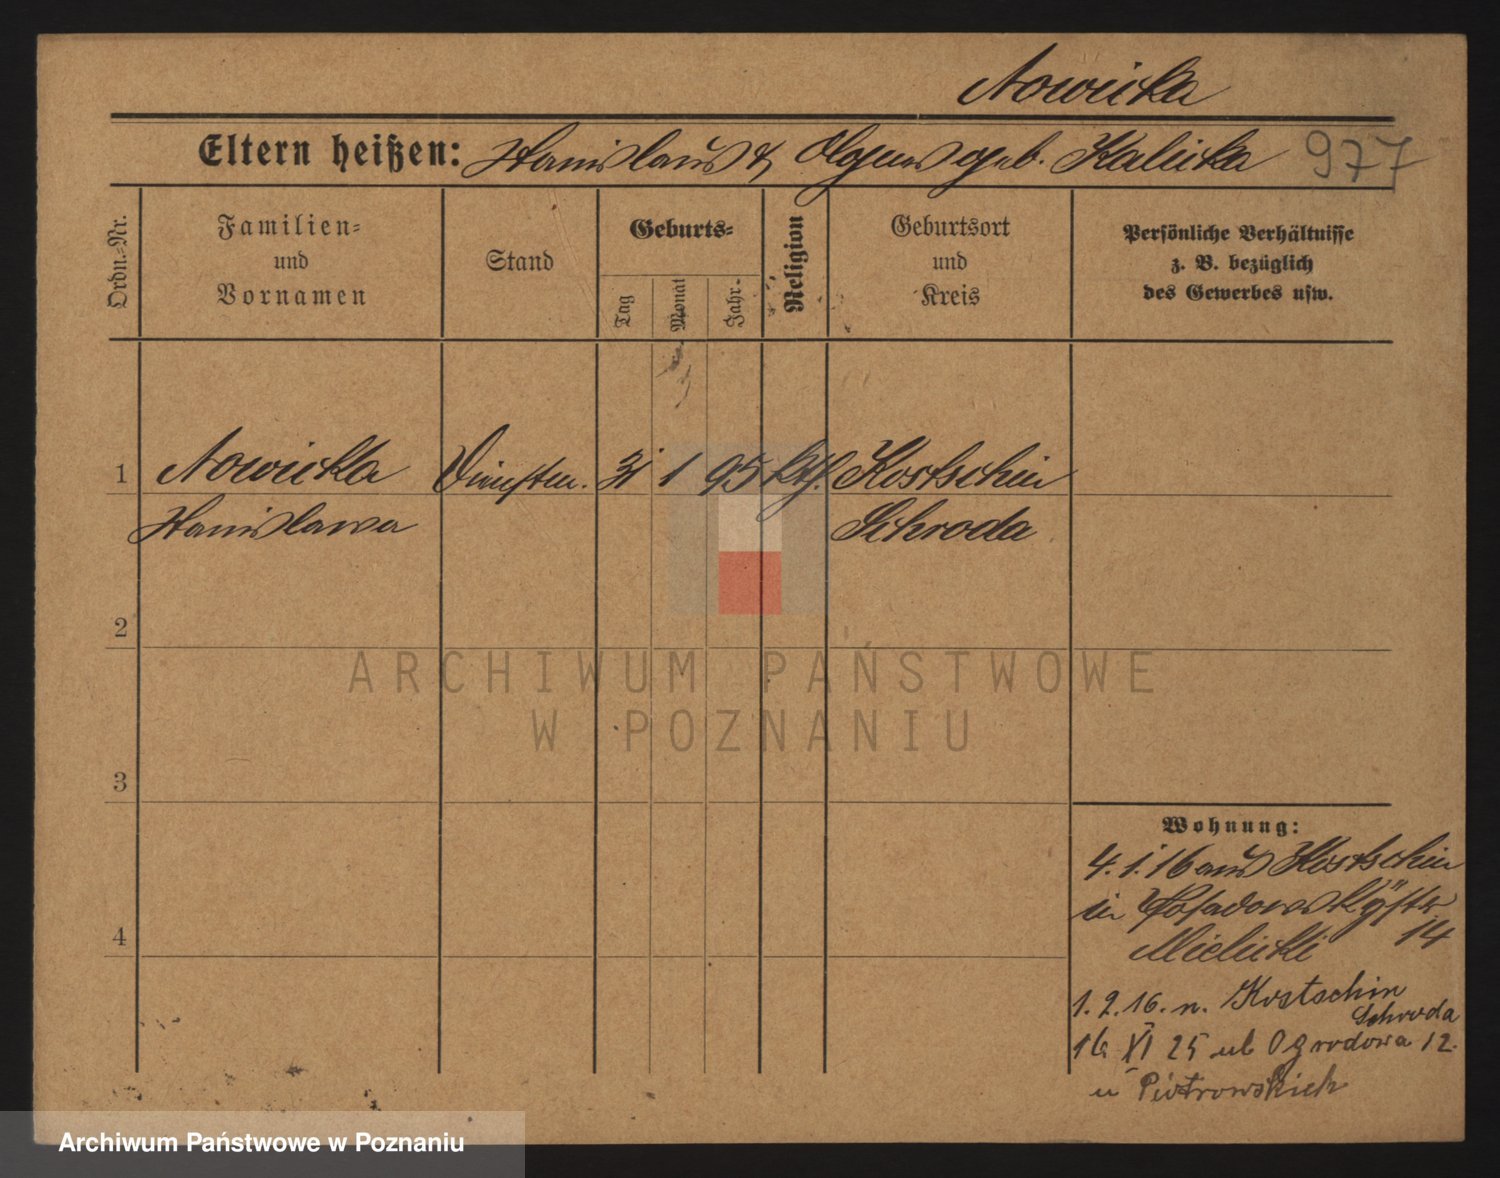 Nowicka
Eltern heißen: Stanislaus & geb. Kalicka 977
Ordn.-Nr.
Familien-
und
Vornamen
Stand
Geburts-
Tag
Monat
Jahr-
Religion
Geburtsort
und
Kreis
Persönliche Verhältnisse
z. B. bezüglich
des Gewerbes usw.
1 Nowicka 31 1 95 kth. Kostschin
Stanislawa Schroda
2
3
4
Wohnung:
4. 1. 16 aus Kostschin
in 14
Mielicki
1. 2. 16. n. Kostschin
Schroda
16 XI 25 ul Ogrodowa 12.
u Piotrowskich
ARCHIWUM PAŃSTWOWE
W POZNANIU
Archiwum Państwowe w Poznaniu